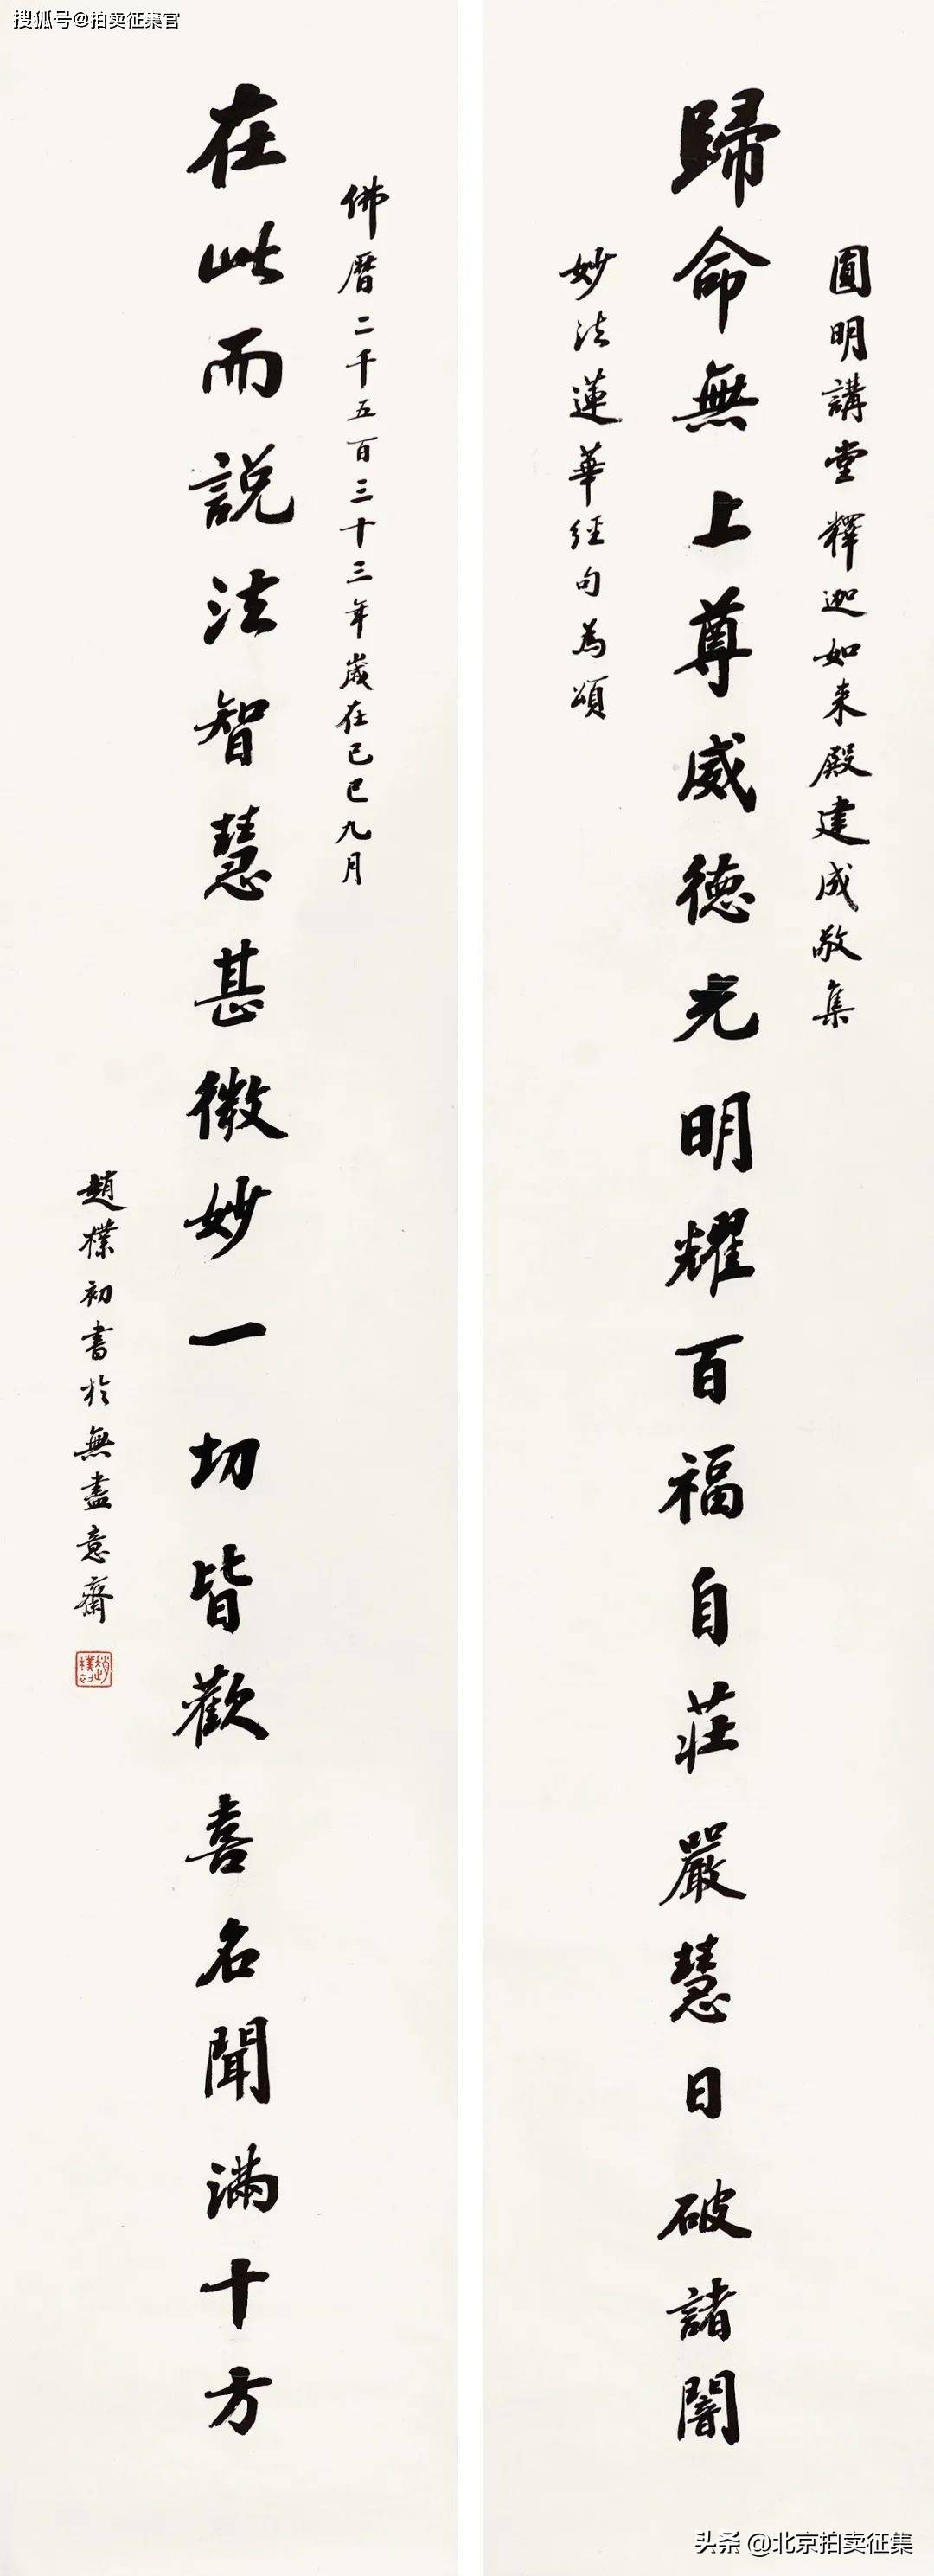 搜狐号@拍卖征集官
圓明講堂釋迦如来殿建成敬集
歸命無上尊威德光明耀百福自莊嚴慧日破諸闇
妙法蓮華経句為頌
佛曆二千五百三十三年歲在己巳九月
在此而說法智慧甚微妙一切皆歡喜名聞滿十方
趙樸初書於無盡意齋
趙樸初
头条 @北京拍卖征集